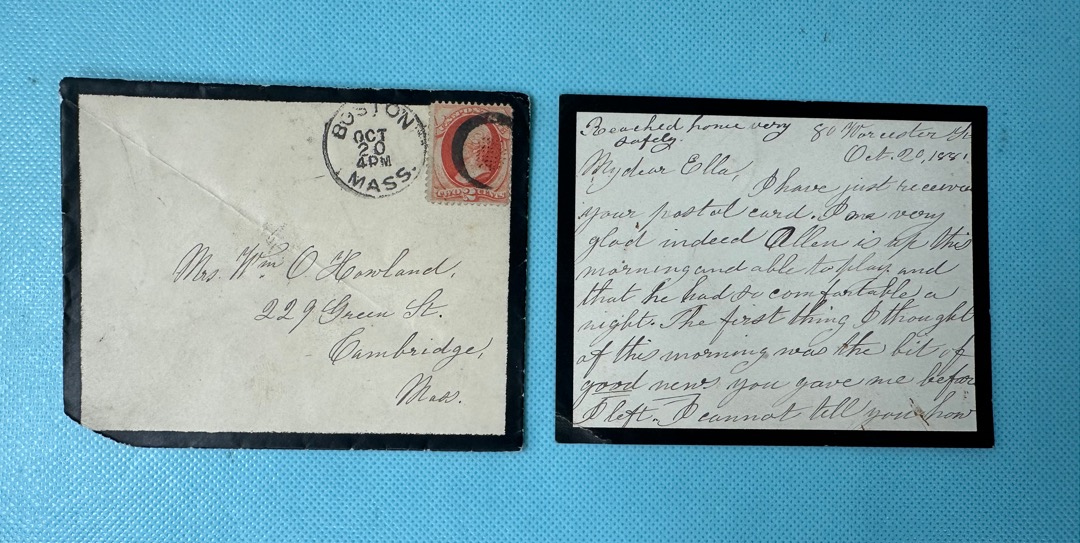 BOSTON
OCT
20
4PM
MASS.
Mrs. Wm O. Howland,
229 Green St.
Cambridge,
Mass.
Reached home very
safely.
80 Worcester St.
Oct. 20, 1881.
My dear Ella,
I have just received
your postal card. I am very
glad indeed Allen is up this
morning and able to play and
that he had so comfortable a
night. The first thing I thought
of this morning was the bit of
good news you gave me before
I left. I cannot tell you how